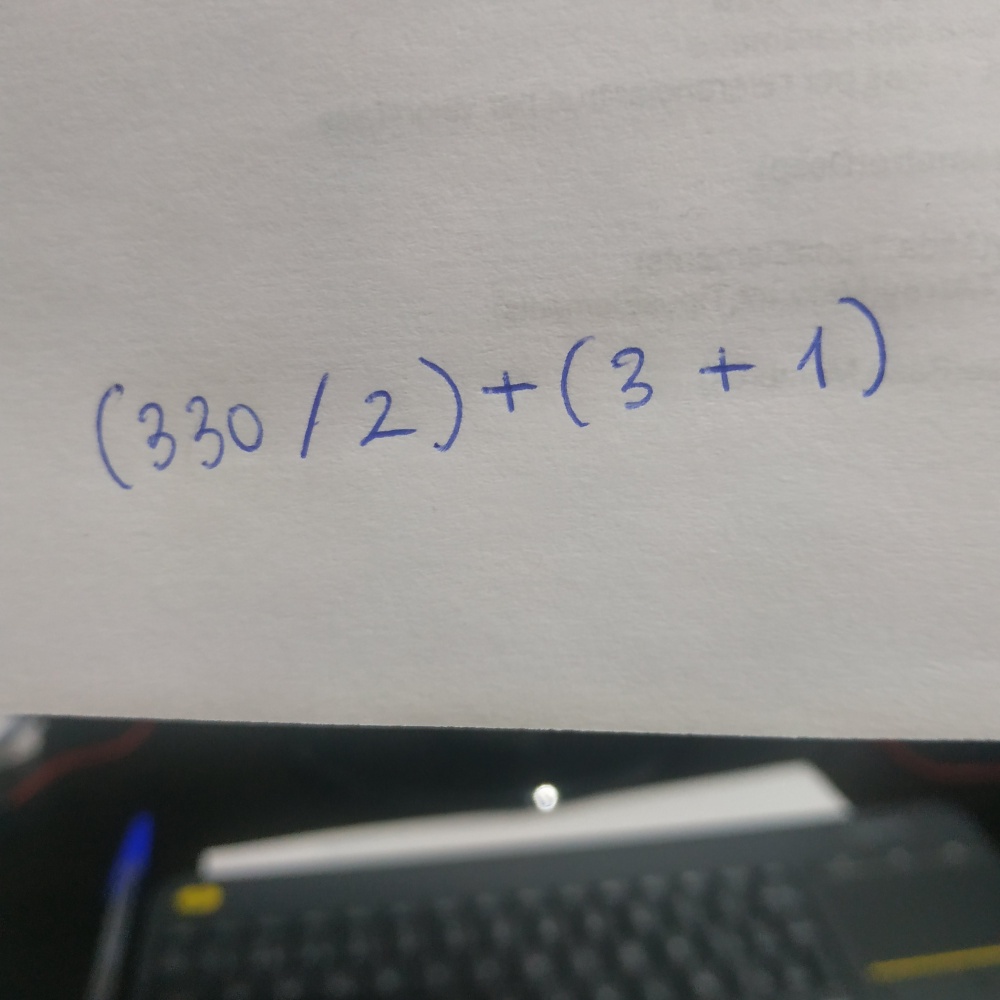 (330 / 2) + (3 + 1)